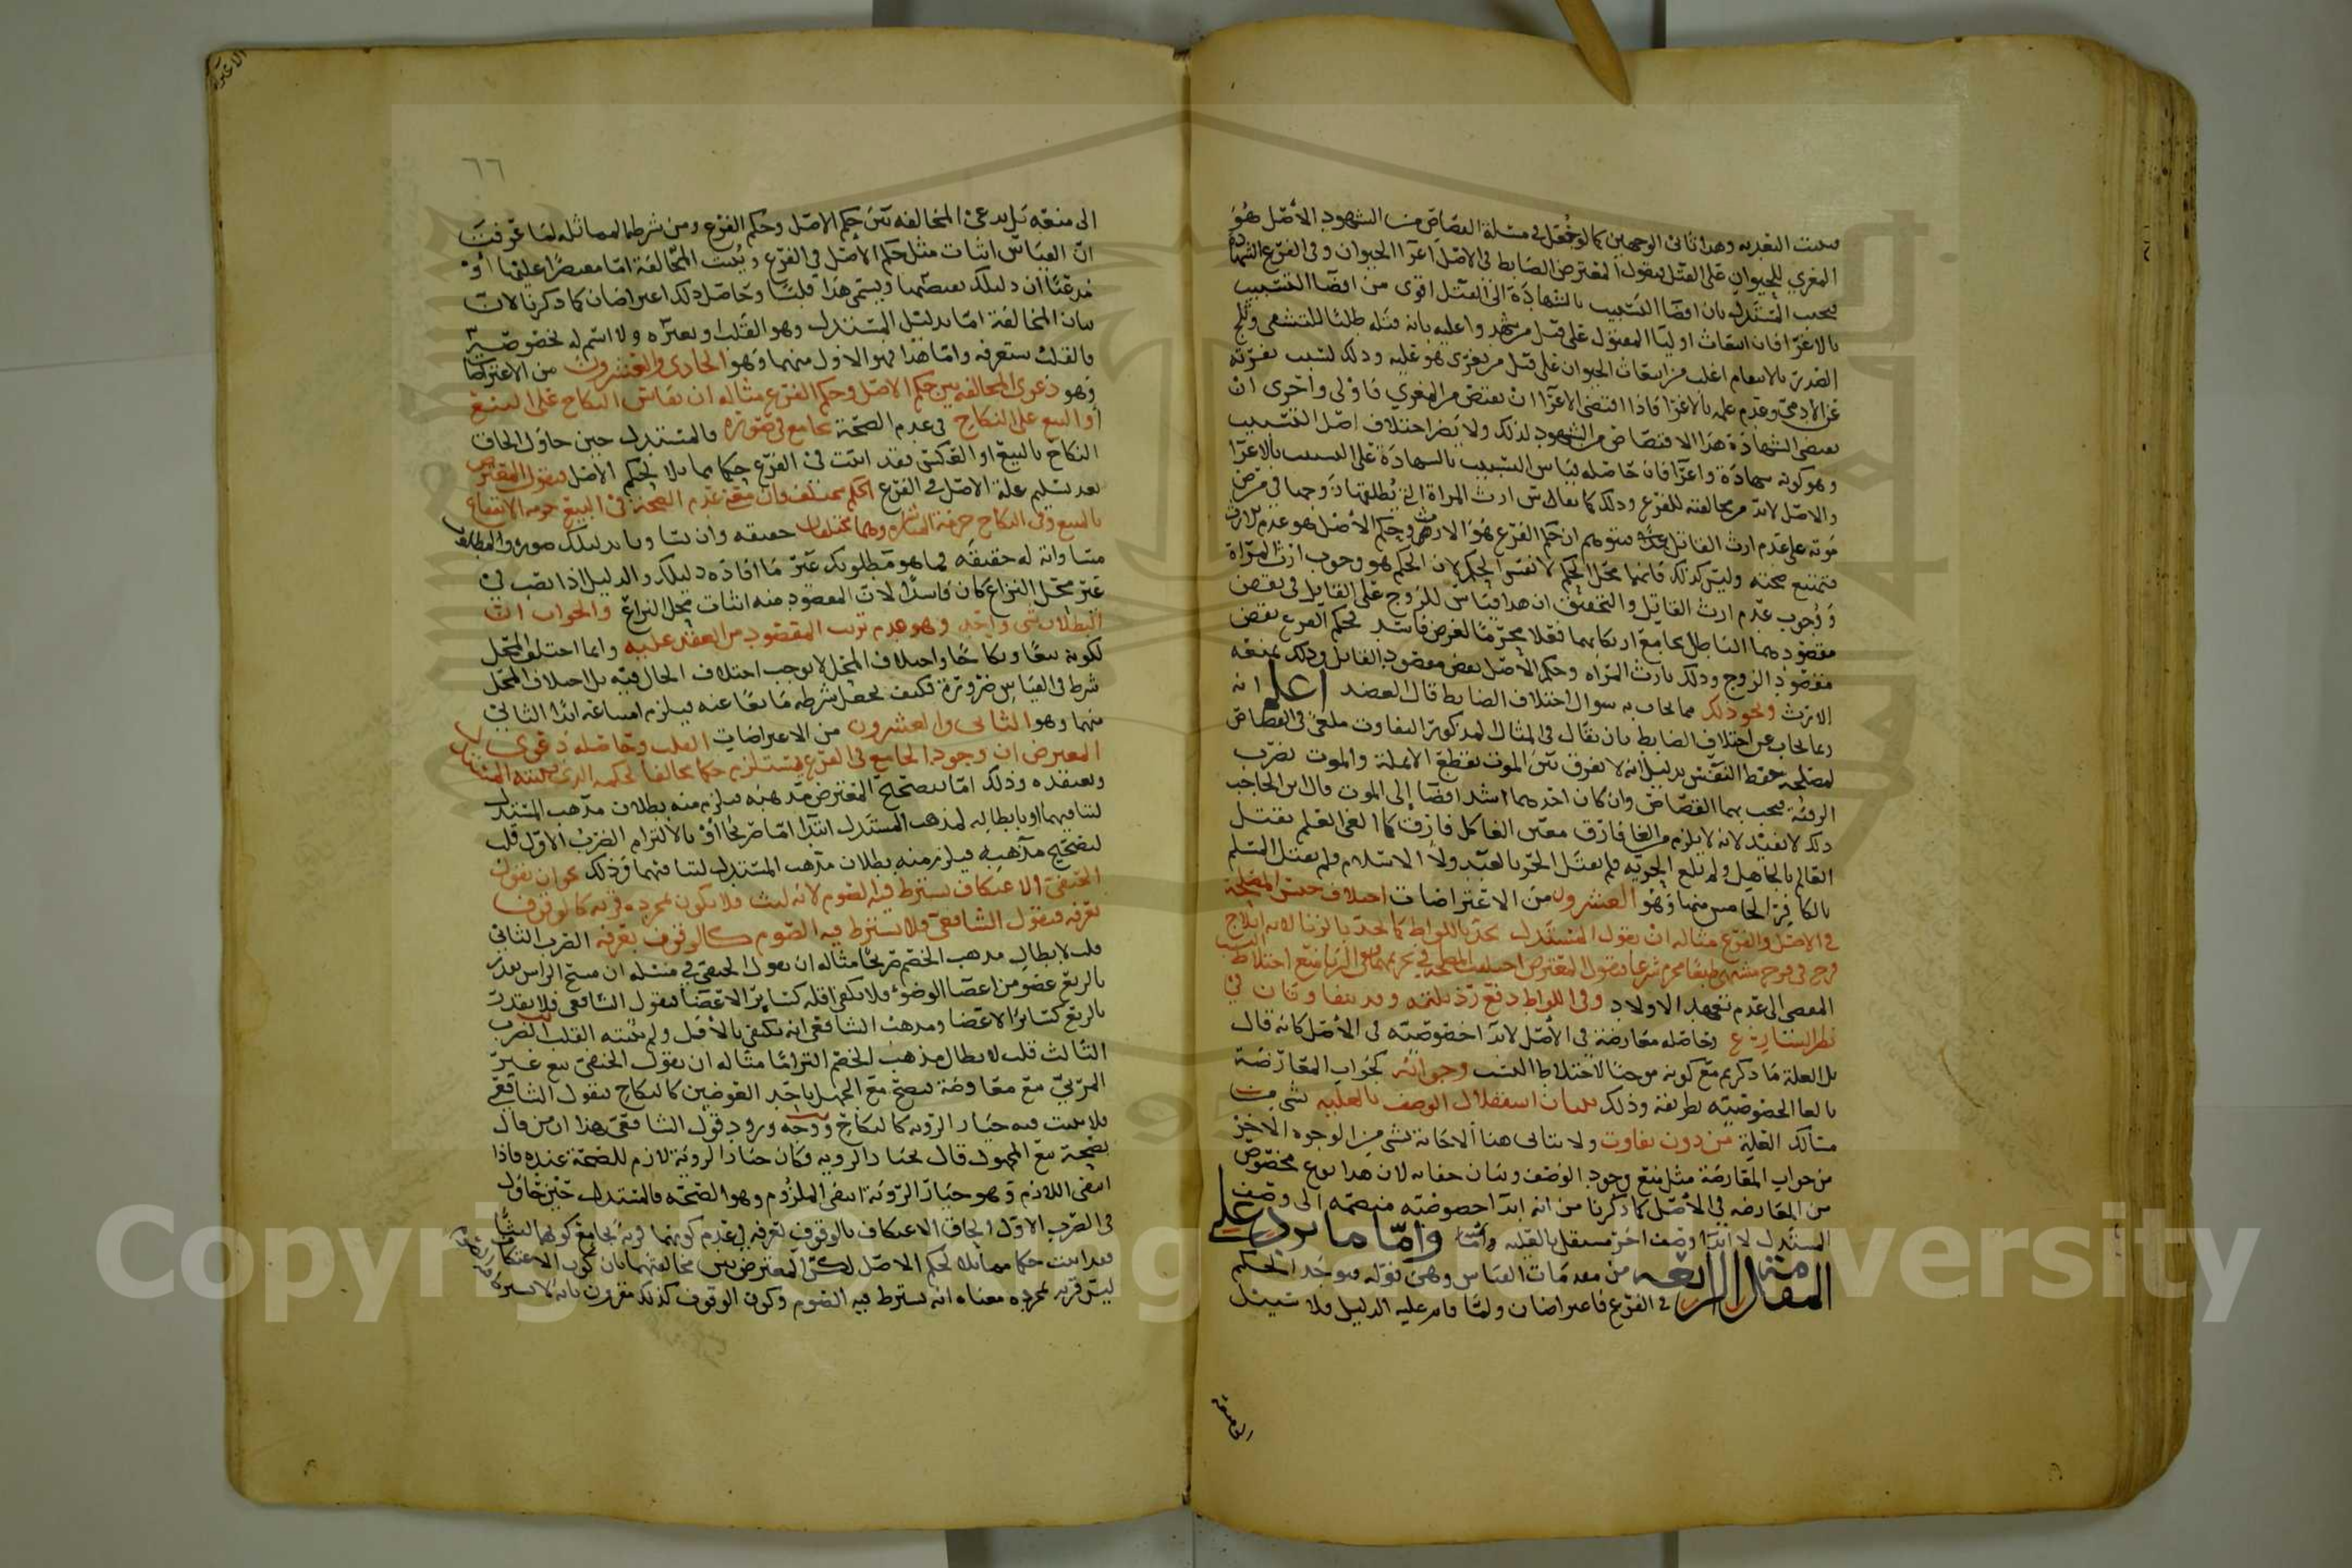 فيثبت التعديه وهذا ثاني الوجهين كما لو جعل في مسئلة القصاص من الشهود الأصل هو
المغري للحيوان على القتل فيقول المعترض الضابط في الاصل اغرا الحيوان وفي الفرع الشهادة
فيجيب المستدل بان افضا التسبيب بالشهادة الى القتل اقوى من افضا التسبيب
بالاغرا فان انبعاث اوليا المقتول على قتل من شهدوا عليه بانه قتله طلبا للتشفي وثلج
الصدر بالانتقام اغلب من انبعاث الحيوان على قتل من يغرى هو عليه وذلك لسبب نفرته
عن الادمي وعدم علمه بالاغرا فاذا اقتضى الاغرا ان يقتص من المغري فاولى واحرى ان
تقتضي الشهادة هذا الاقتصاص من الشهود لذلك ولا يضر اختلاف اصل التسبيب
وهو كونه شهادة واغرا فان حاصله قياس التسبيب بالشهادة على التسبيب بالاغرا
والاصل لابد من مخالفته للفرع وذلك كما يقال في ارث المراة التي يطلقها زوجها في مرض
موته على عدم ارث القاتل فيتوهم ان حكم الفرع هو الارث وحكم الأصل هو عدم الارث
فتمتنع صحته وليس كذلك فانهما محل الحكم لا نفس الحكم لان الحكم هو وجوب ارث المراة
ووجوب عدم ارث القاتل والتحقيق ان هذا قياس للزوج على القاتل في نقض
مقصودهما الباطل بجامع ارتكابهما فعلا محرما لغرض فاسد فحكم الفرع نقض
مقصود الزوج وذلك بارث المراه وحكم الأصل نقض مقصود القاتل وذلك بمنعه
الارث ونحو ذلك مما يجاب به سوال اختلاف الضابط قال العضد اعلم انه
ربما يجاب عن اختلاف الضابط بان يقال في المثال المذكور التفاوت ملغى في القصاص
لمصلحة حفظ النفس بدليل انه لا يفرق بين الموت بقطع الانملة والموت بضرب
الرقبة فيجب بهما القصاص وان كان احدهما اشد افضا إلى الموت قال ابن الحاجب
ذلك لا يفيد لانه لا يلزم من الغا فارق معين الغا كل فارق كما الغي العلم بقتل
العالم بالجاهل ولم تلغ الحريه فلم يقتل الحر بالعبد ولا الاسلام فلم يقتل المسلم
بالكافر الخامس منها وهو العشرون من الاعتراضات اختلاف جنس المصلحة
في الاصل والفرع مثاله ان يقول المستدل يحد باللواط كما يحد بالزنا لانه ايلاج
فرج في فرج مشتهى طبعا محرم شرعا فيقول المعترض اختلفت المصلحة في تحريمهما ففي الزنا منع اختلاط النسب
المفضي الى عدم تعهد الاولاد وفي اللواط دفع رذيلته وقد يتفاوتان في
نظر الشارع وحاصله معارضة في الأصل لابدا خصوصيته في الأصل كانه قال
بل العلة ما ذكرتم مع كونه موجبا لاختلاط النسب وجوابه كجواب المعارضة
بالغا الخصوصيه بطريقة وذلك ببيان استقلال الوصف بالعلية بشي من
مسالك العلية من دون تفاوت ولا يتاتى هنا الاجابة بشي من الوجوه الاخر
من جواب المعارضة مثل منع وجود الوصف وبيان خفائه لان هذا نوع مخصوص
من المعارضه في الأصل كما ذكرنا من انه ابدا خصوصيته منضمه الى وصف
المستدل لا ابدا وصف اخر مستقل بالعليه واما ما يرد على
المقدمة الرابعه من مقدمات القياس وهي قوله فيوجد الحكم
في الفرع فاعتراضان ولما قام عليه الدليل فلا سبيل
٦٦
الى منعه بل يدعى المخالفه بين حكم الاصل وحكم الفرع ومن شرطها المماثله لما عرفت
ان القياس اثبات مثل حكم الأصل في الفرع ويثبت المخالفة اما مقتصرا عليها او
مدعيا ان دليلك يقتضيها ويسمى هذا قلبا وحاصل ذلك اعتراضان كما ذكرنا لان
بيان المخالفة اما بدليل المستدل وهو القلب او بغيره ولا اسم له بخصوصه
فالقلب ستعرفه واما هذا فهو الاول منهما وهو الحادي والعشرون من الاعتراضات
وهو دعوى المخالفه بين حكم الاصل وحكم الفرع مثاله ان يقاس النكاح على البيع
أو البيع على النكاح في عدم الصحة بجامع في صورة فالمستدل حين حاول الحاق
النكاح بالبيع او العكس فقد اثبت في الفرع حكما مماثلا لحكم الأصل فيقول المعترض
بعد تسليم علة الاصل في الفرع الحكم مختلف فان معنى عدم الصحة في البيع حرمة الانتفاع
بالمبيع وفي النكاح حرمة المباشره وهما مختلفان حقيقه وان تساويا بدليلك صورة والمطلوب
مساواته له حقيقه فما هو مطلوبك غير ما افاده دليلك والدليل اذا نصب في
غير محل النزاع كان فاسدا لان المقصود منه اثبات محل النزاع والجواب ان
البطلان شي واحد وهو عدم ترتب المقصود من العقد عليه وانما اختلف المحل
لكونه بيعا ونكاحا واختلاف المحل لا يوجب اختلاف الحال فيه بل اختلاف المحل
شرط في القياس ضرورة فكيف يجعل شرطه مانعا عنه فيلزم امتناعه ابدا الثاني
منهما وهو الثاني والعشرون من الاعتراضات القلب وحاصله دعوى
المعترض ان وجود الجامع في الفرع يستلزم حكما مخالفا لحكمه الذي يثبته المستدل
ويعتقده وذلك اما بتصحيح المعترض مذهبه فيلزم منه بطلان مذهب المستدل
لتنافيهما او بابطاله لمذهب المستدل ابتدا اما صريحا أو بالالتزام الضرب الاول قلب
لتصحيح مذهبه فيلزم منه بطلان مذهب المستدل لتنافيهما وذلك نحو ان يقول
الحنفي الاعتكاف يشترط فيه الصوم لانه لبث فلا يكون بمجرده قربه كالوقوف
بعرفه فيقول الشافعي فلا يشترط فيه الصوم كالوقوف بعرفه الضرب الثاني
قلب لابطال مذهب الخصم صريحا مثاله ان يقول الحنفي في مسئله ان مسح الراس يقدر
بالربع عضو من اعضا الوضوء فلا يكفي اقله كسائر الاعضا فيقول الشافعي فلا يقدر
بالربع كسائر الاعضا ومذهب الشافعي انه يكفي بالأقل ولم يثبته القلب الضرب
الثالث قلب لابطال مذهب الخصم التزاما مثاله ان يقول الحنفي بيع غير
المرئي بيع معاوضة فيصح مع الجهل باحد العوضين كالنكاح فيقول الشافعي
فلا يثبت فيه خيار الرويه كالنكاح ووجه ورود قول الشافعي هذا ان من قال
بصحة بيع المجهول قال بخيار الرويه فكان خيار الروية لازم للصحة عنده فاذا
انتفى اللازم وهو خيار الروية انتفى الملزوم وهو الصحه فالمستدل حين حاول
في الضرب الاول الحاق الاعتكاف بالوقوف بعرفه في عدم كونهما قربة بجامع كونهما لبثا
فقد اثبت حكما مماثلا لحكم الاصل لكن المعترض بين مخالفتهما بان كون الاعتكاف
ليس قربه بمجرده معناه انه يشترط فيه الصوم وكون الوقوف كذلك مقرون بانه لا يشترط